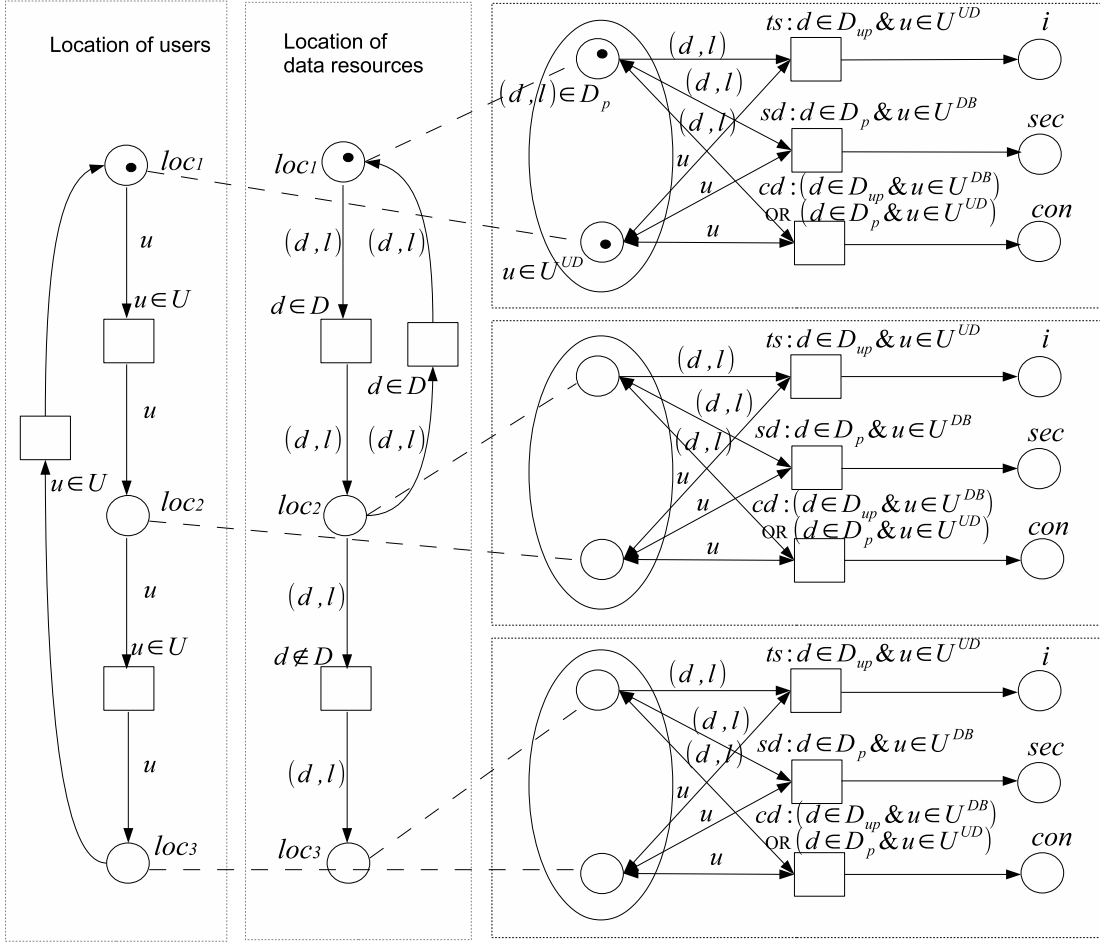 Location of users
loc1
u
u∈U
u
u∈U
loc2
u
u∈U
u
loc3
Location of
data resources
loc1
(d,l) (d,l)
d∈D
d∈D
(d,l) (d,l)
loc2
(d,l)
d∉D
(d,l)
loc3
(d,l)∈D_p
u∈U^{UD}
(d,l)
(d,l)
(d,l)
u
u
u
ts:d∈D_{up}&u∈U^{UD}
i
sd:d∈D_p&u∈U^{DB}
sec
cd:(d∈D_{up}&u∈U^{DB})
OR (d∈D_p&u∈U^{UD})
con
(d,l)
(d,l)
(d,l)
u
u
u
ts:d∈D_{up}&u∈U^{UD}
i
sd:d∈D_p&u∈U^{DB}
sec
cd:(d∈D_{up}&u∈U^{DB})
OR (d∈D_p&u∈U^{UD})
con
(d,l)
(d,l)
(d,l)
u
u
u
ts:d∈D_{up}&u∈U^{UD}
i
sd:d∈D_p&u∈U^{DB}
sec
cd:(d∈D_{up}&u∈U^{DB})
OR (d∈D_p&u∈U^{UD})
con